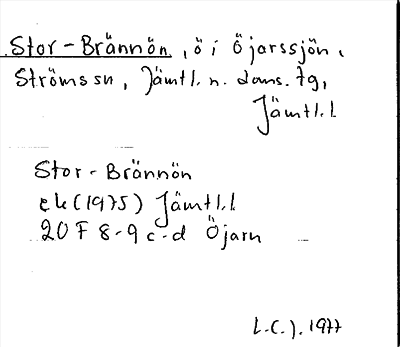 Stor-Brännön, ö i Öjarssjön,
Ströms sn, Jämtl. n. doms. tg,
Jämtl. l
Stor-Brännön
ek (1975) Jämtl. l
20 F 8-9 c-d Öjarn
L.C.J. 1977